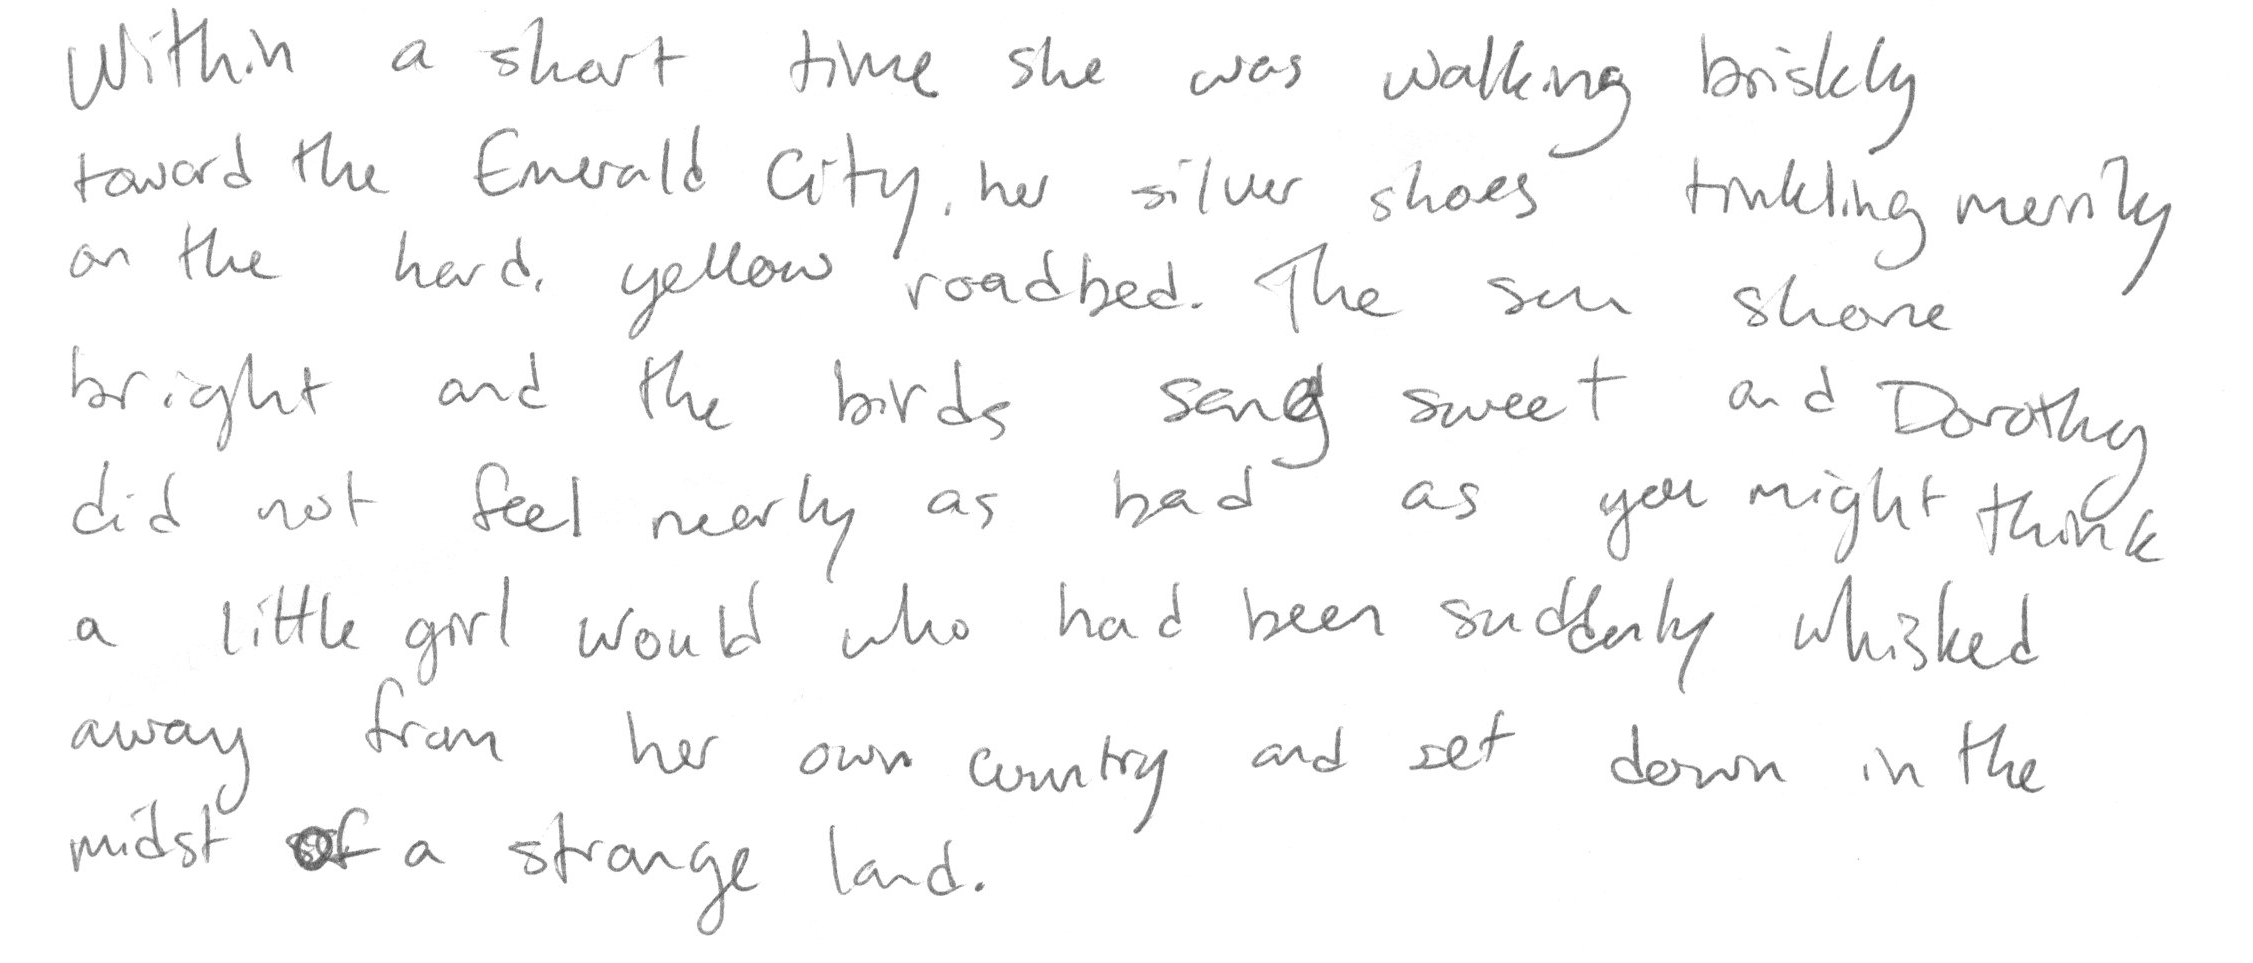 Within a short time she was walking briskly
toward the Emerald City, her silver shoes tinkling merrily
on the hard, yellow roadbed. The sun shone
bright and the birds sang sweet and Dorothy
did not feel nearly as bad as you might think
a little girl would who had been suddenly whisked
away from her own country and set down in the
midst of a strange land.